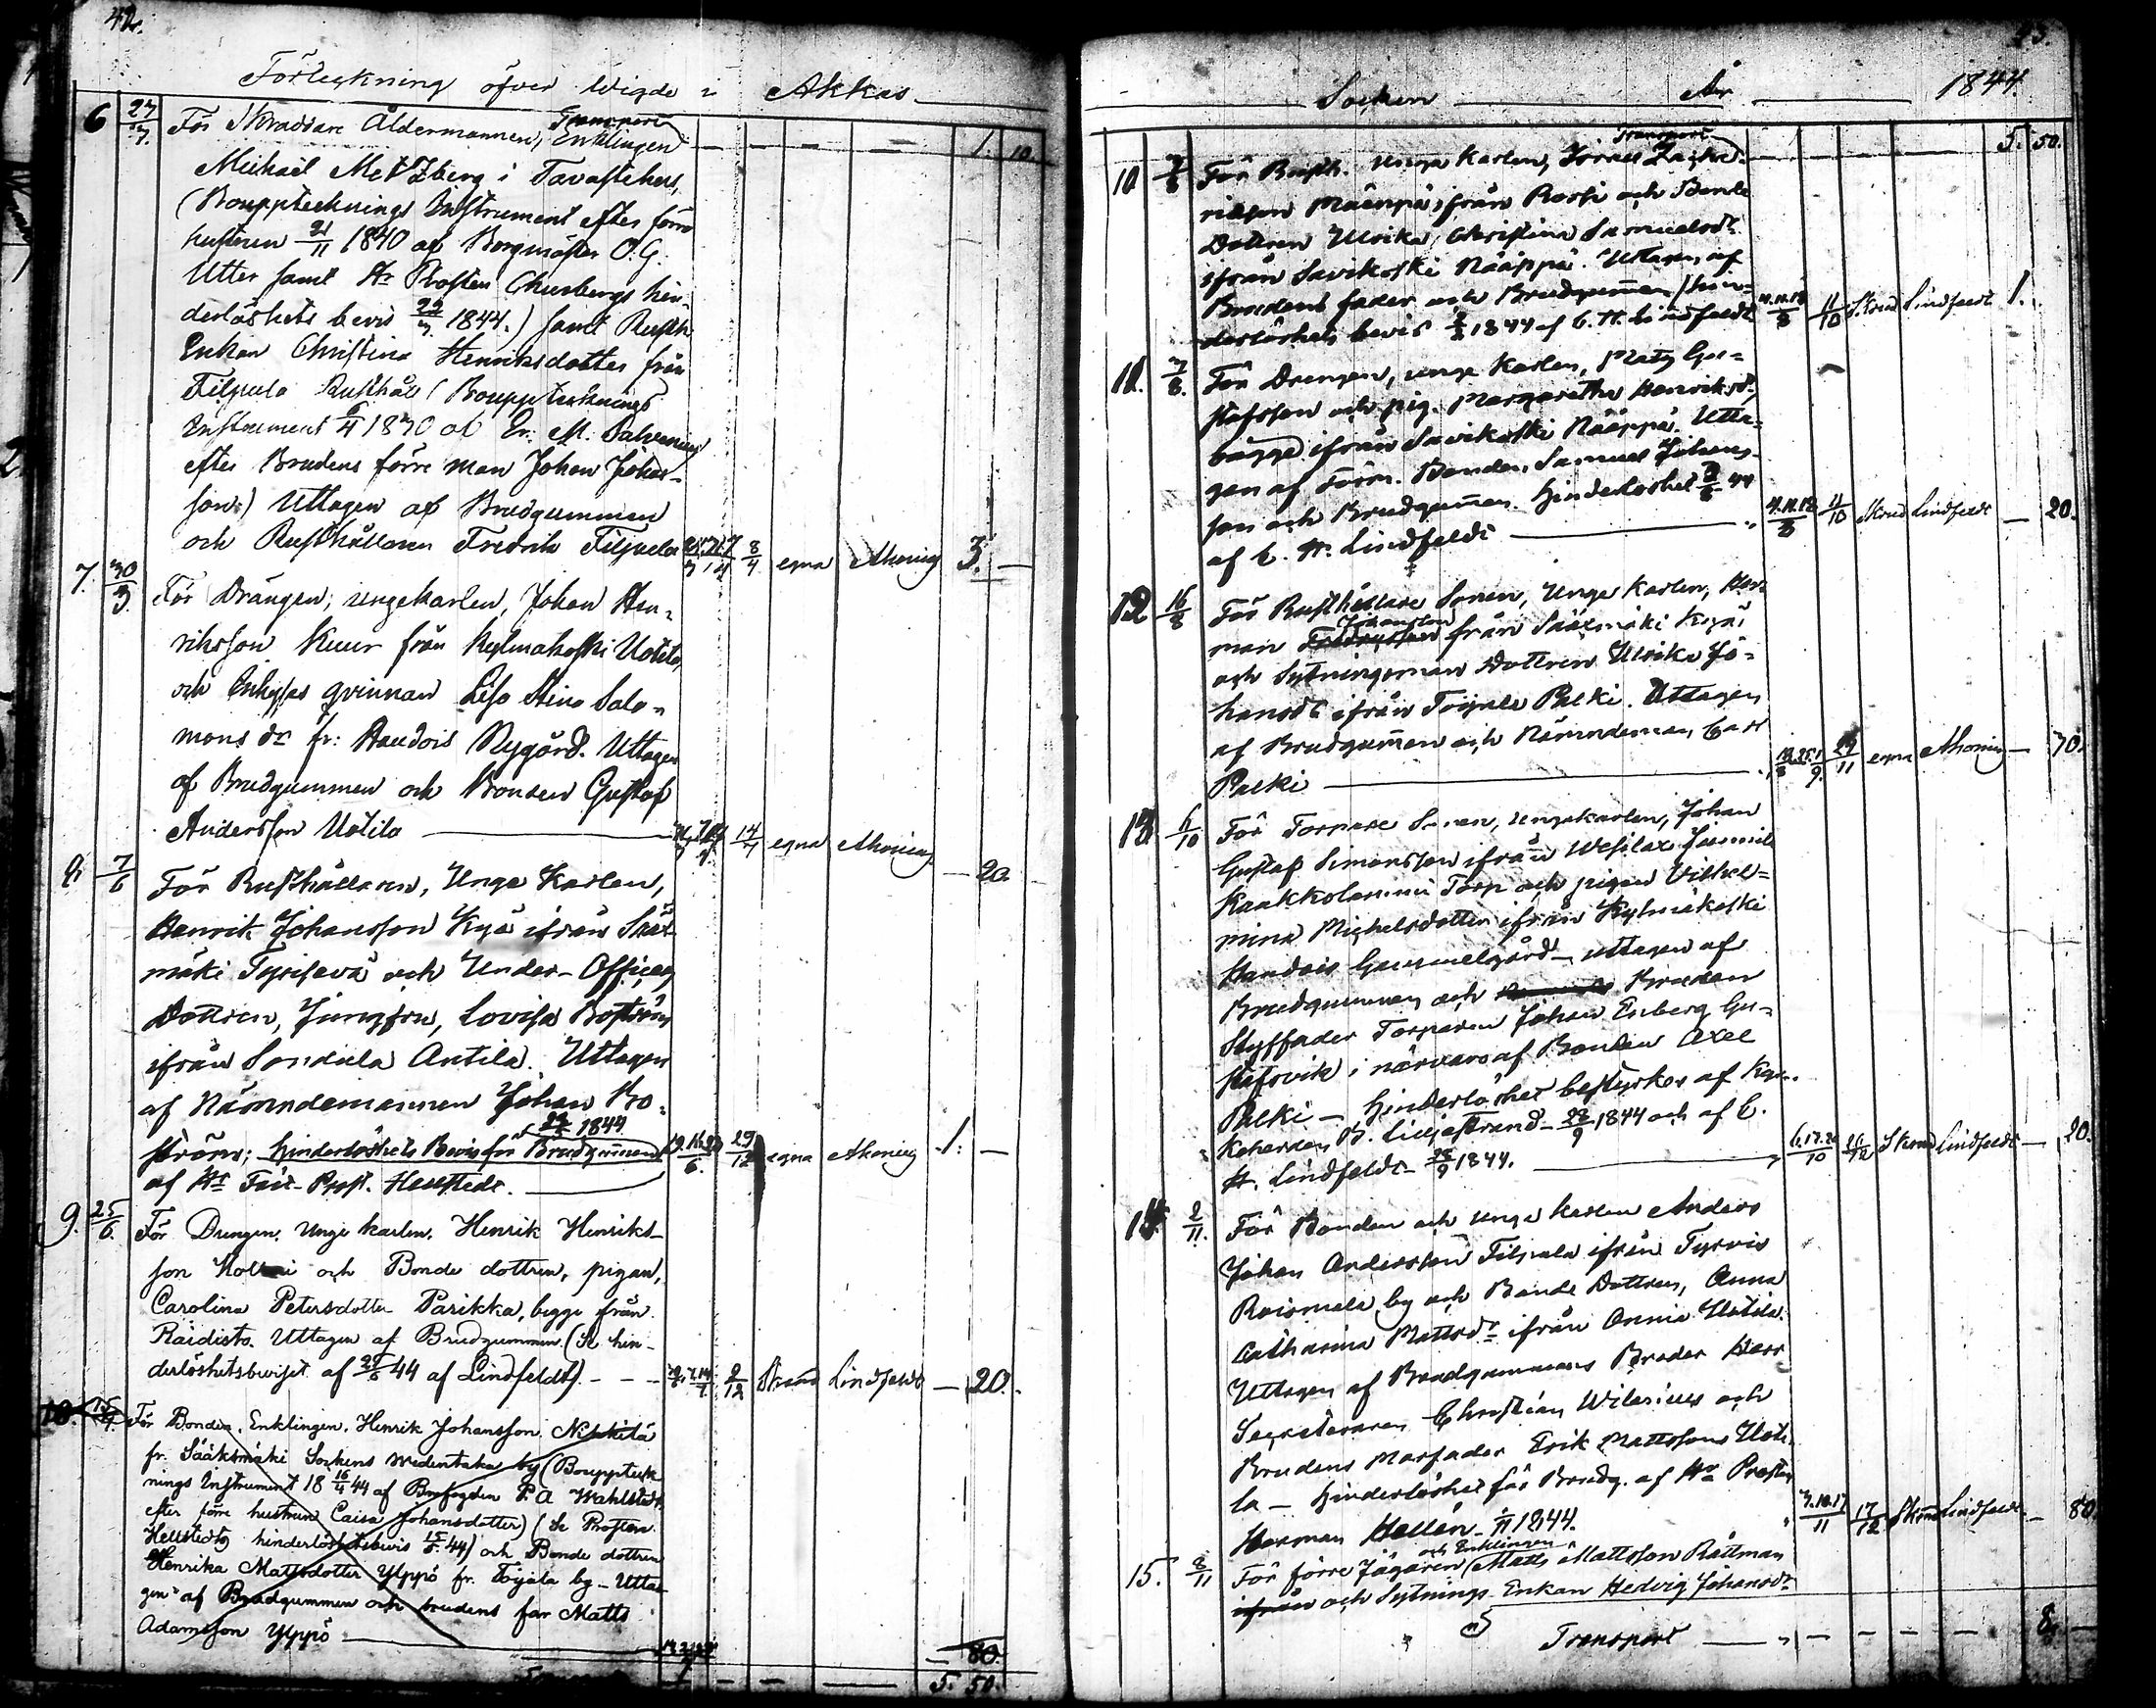 42.
Förteckning öfver Wigde i Akkas
Transport 1. 10.
6 27/3. För Skraddare Åldermannen, Enklingen
Michaël Metzberg i Tavastehus,
(Bouppteknings Instrument efter förra
hustrun 21/11 1840 af Borgmäster O. G.
Utter samt Hr Prosten Chusbergs hin-
derlöshets bevis 22/3 1844.) samt Rusth.
Enkan Christina Henriksdotter från
Filpula Rusthåll (Bouppteknings
Instrument 6/4 1830 af Er. M. Salvenius
efter Brudens förre man Johan Johans-
son.) Uttagen af Brudgummen
och Rusthållaren Fredrik Filpula 8/4 egna Ahonius 3. —
7. 30/3. För Drängen, ungekarlen, Johan Hen-
riksson Kuur från Kylmäkoski Uotila,
och Inhyses qvinnan Lisa Stina Salo-
mons dr fr: Haudois Nygård. Uttagen
af Brudgummen och Bonden Gustaf
Andersson Uotila 14/7 egna Ahonius — 20.
8. 7/6 För Rusthållaren, Unge Karlen,
Henrik Johansson Kyä ifrån Sääx-
mäki Tyrisevä och Under-Officers
Dottren, Jungfru, Lovisa Boström
ifrån Sondiala Antila. Uttagen
af Nämndemannen Johan Bo-
d. 22/5 1844
ström; Hinderlöshets Bevis för Brudgummen 29/12 egna Ahonius 1. —
af Hr Prost. Hellstedt.
9. 25/6. För Drengen, Unge karlen, Henrik Henriks-
son och Bonde dottren, pigan,
Carolina Petersdotter Parikka, begge från
Räidisto. Uttagen af Brudgummen. (Se hin-
derlöshetsbeviset af 44 af Lindfeldt). 2/12 Lindfeldt — 20.
10. För Bonden, Enklingen, Henrik Johansson Nikkilä
fr. Sääksmäki Sockens Wedentaka by (Boupptek-
nings Instrument 18 16/4 44 af P. A Wahlstedt
efter förre hustrun Caisa Johansdotter) (Se Prosten
Hellstedts hinderlöshetsbevis 15/5 44) och Bonde dottren
Henrika Mattsdotter Ylppö fr. Toijala by – Utta-
gen af Brudgummen och brudens far Matts
Adamsson Ylppö — 80.
5. 50.
43.
Socken År 1844.
Transport 5. 50.
10 För Rusth. Unge Karlen, Zackd-
riksson Määnpä, från och Bonde
Dottren Ulrika Christina Samuelsdr
ifrån Savikoski Nääppä. Uttagen af
Brudens fader och Brudgummen (hin-
derlöshets bevis 1844 af C. H. Lindfeldt 11/10 Lindfeldt 1.
11. 7/8. För Drengen, unge Karlen, Matz Gus-
tafsson och pig. Margaretha Henriksdr
bägge ifrån Savikoski Nääppä. Utta-
gen af Bonden Samuel Johans-
son och Brudgummen. Hinderlöshet 44
af C. H. Lindfeldt 11/10 Lindfeldt — 20.
12 16/8 För Rusthållare Sonen, Unge Karlen, Her-
Johansson
man från Sääxmäki Kyä,
och Sytningsman Dottren Ulrika Jo-
hansdr ifrån Toijala Pälki. Uttagen
af Brudgummen och Nämndeman Carl
Palki 29/11 egna Ahonius — 70.
13. 6/10 För Torpare Sonen, ungekarlen, Johan
Gustaf Simonsson ifrån Wesilax
Kaakkolammi Torp och pigan Vilhel-
mina Michelsdotter ifrån Kylmäkoski
Haudois Gammelgård – uttagen af
Brudgummen och Bruden
Styffader Torparen Johan Enberg Gu-
stafsvik i närvaro af Bonden Axel
Palki – Hinderlöshet bestyrkes af Kyr-
koherden B. Liljestrand – 28/9 1844 och af C.
H. Lindfeldt – 28/9 1844. 26/12 Lindfeldt — 20.
14. 2/11. För Bonden och unge karlen Anders
Johan Andersson Filpula ifrån Tyrvis
Roismala by och Bonde Dottren, Anna
Catharina Mattsdr ifrån Annia Uotila.
Uttagen af Brudgummans Broder Herr
Secreteraren Christian Wilenius och
Brudens Morfader Erik Mattsson Uoti-
la – Hinderlöshet för Brudg. af Hr Prosten
Herman Hellén – 1/11 1844. 17/12 Lindfeldt — 80.
och Enklingen
15. 8/11 För förre Jägaren Matts Mattsson Råttman
ifrån och Sytnings Enkan Hedvig Johansdr
Transport 8.